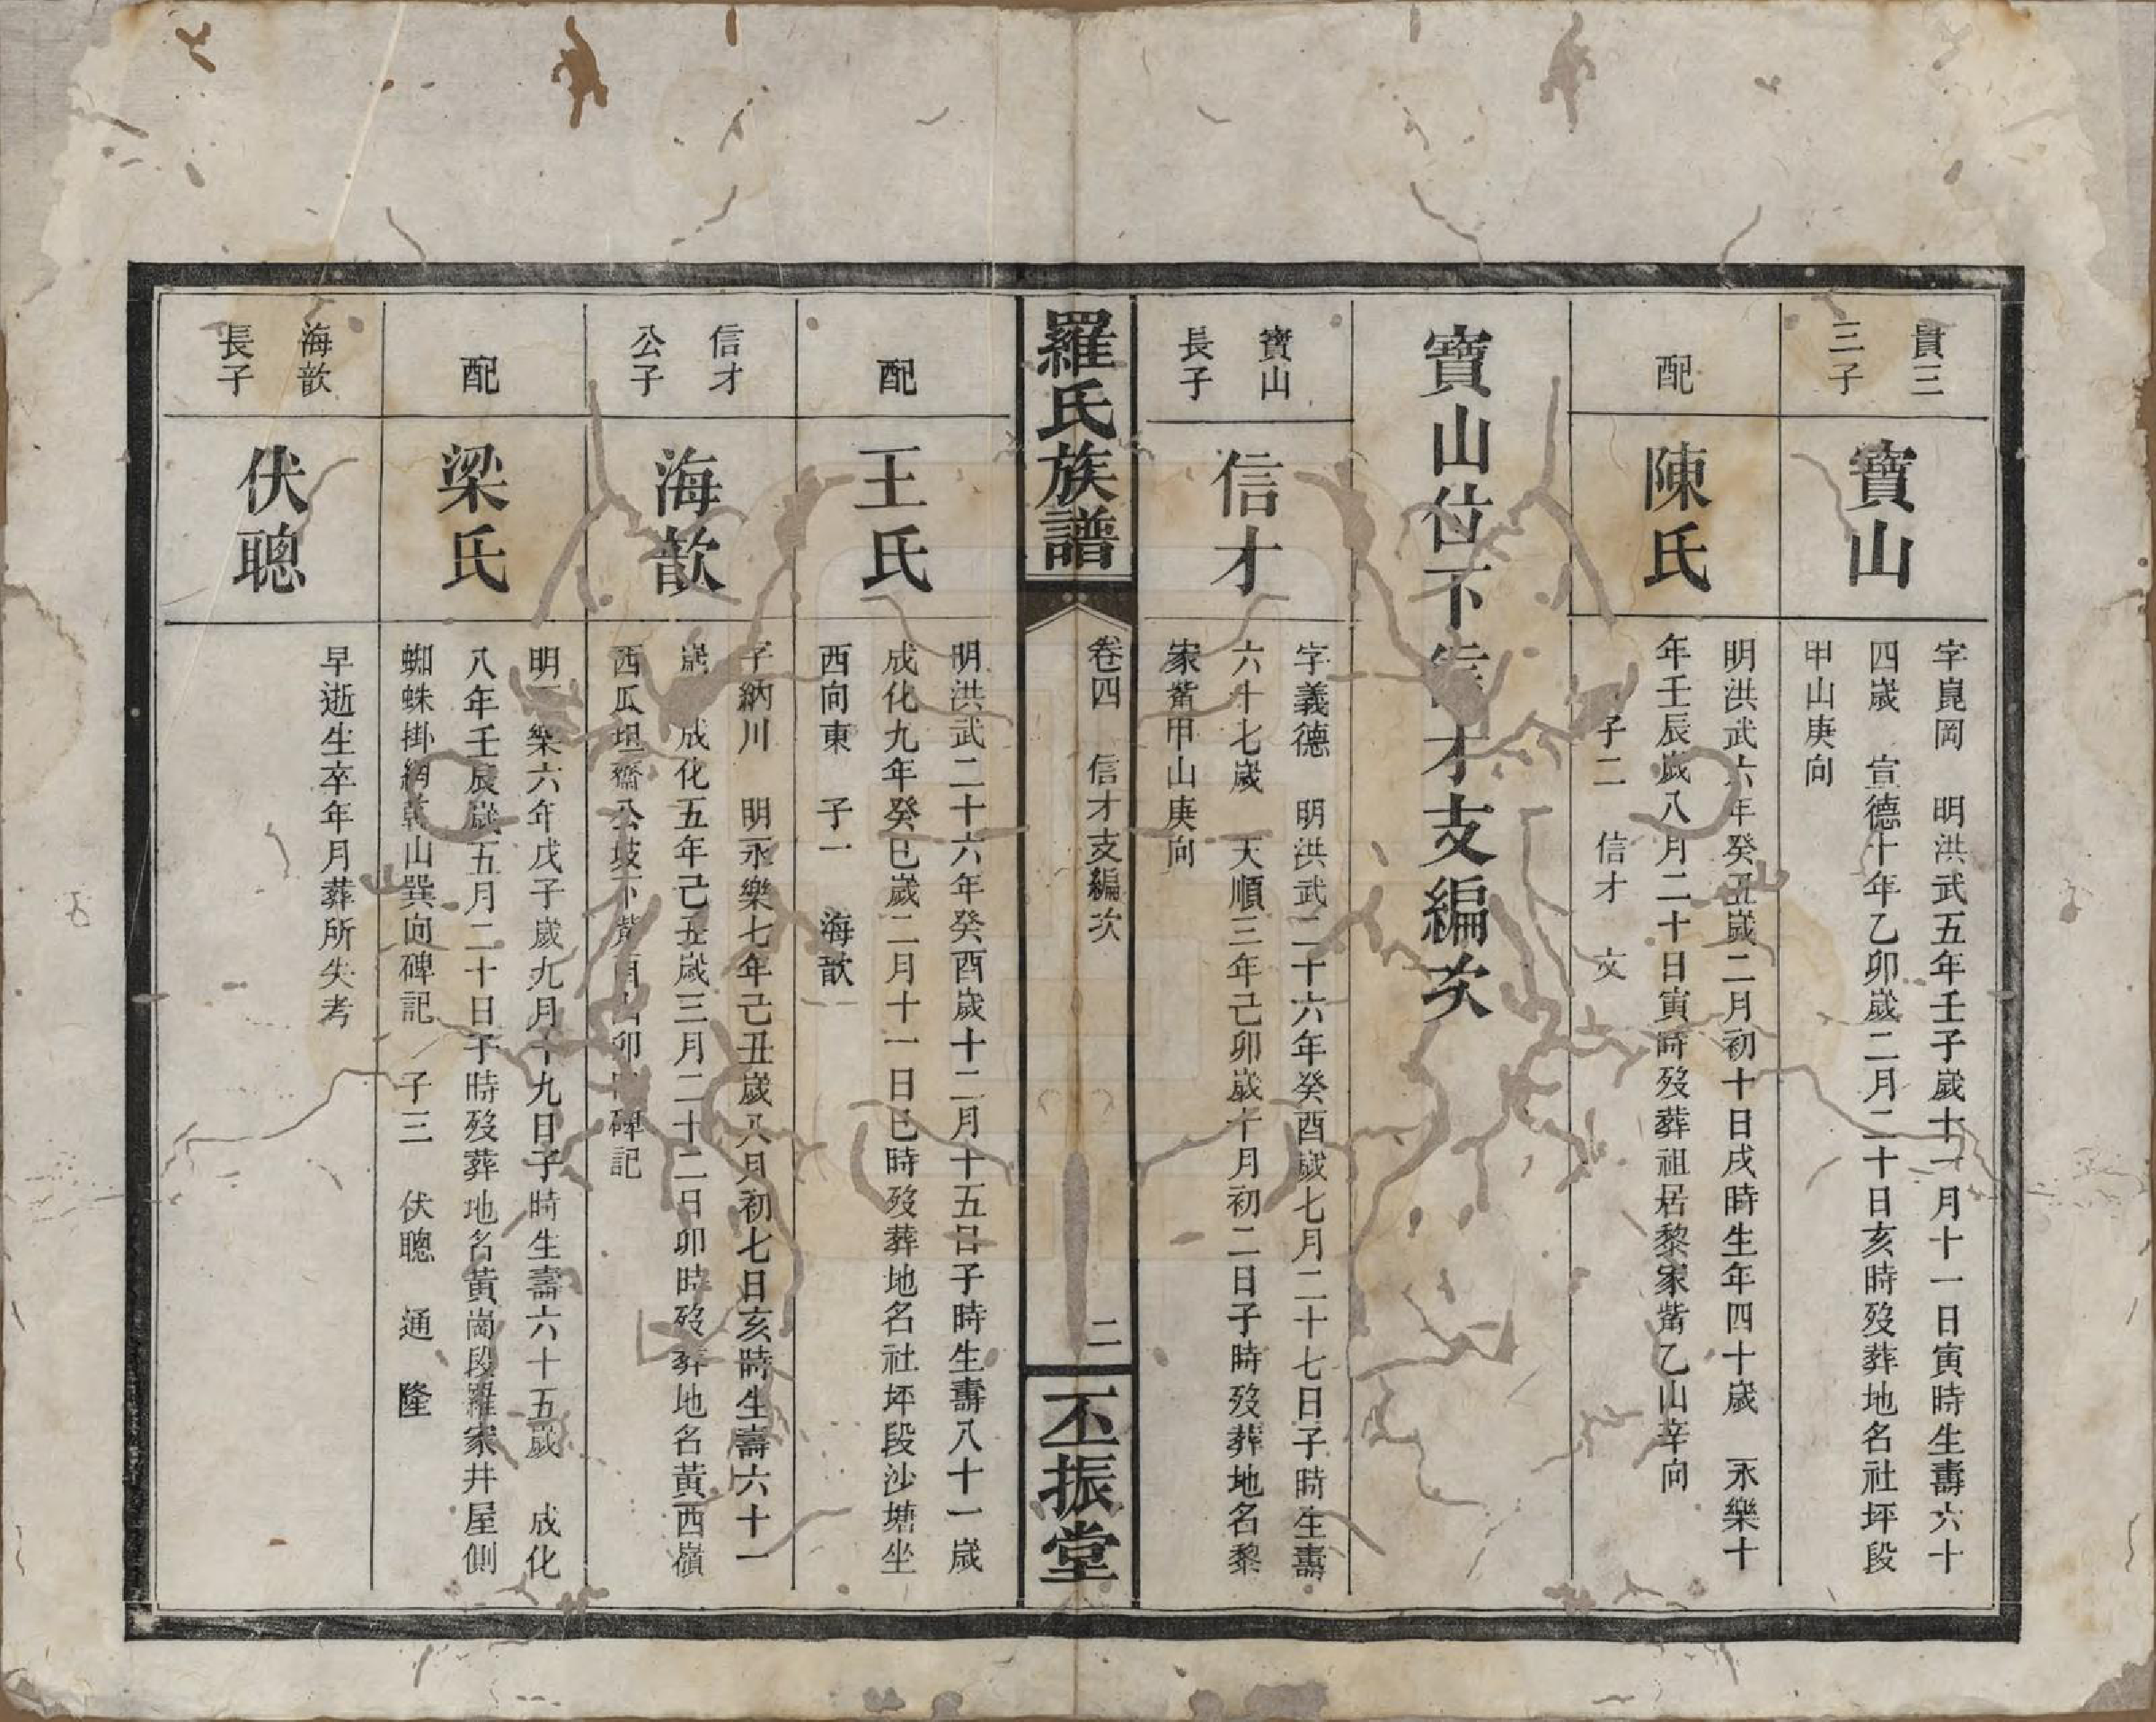 貴三
三子
寶山
字崑岡　明洪武五年壬子歲十一月十一日寅時生壽六十
四歲　宣德十年乙卯歲二月二十日亥時歿葬地名社坪段
甲山庚向
配
陳氏
明洪武六年癸丑歲二月初十日戌時生年四十歲　永樂十
年壬辰歲八月二十日寅時歿葬祖居黎家嘴乙山辛向
子二　信才　文
寶山位下信才支編次
寶山
長子
信才
字義德　明洪武二十六年癸酉歲七月二十七日子時生壽
六十七歲　天順三年己卯歲十月初二日子時歿葬地名黎
家嘴甲山庚向
羅氏族譜
卷四　信才支編次
二
丕振堂
配
王氏
明洪武二十六年癸酉歲十二月十五日子時生壽八十一歲
成化九年癸巳歲二月十一日巳時歿葬地名社坪段沙塘坐
西向東　子一　海歆
信才
公子
海歆
字納川　明永樂七年己丑歲八月初七日亥時生壽六十一
歲　成化五年己丑歲三月二十二日卯時歿葬地名黃西嶺
西瓜坦齋公坡下葬酉山卯向碑記
配
梁氏
明永樂六年戊子歲九月十九日子時生壽六十五歲　成化
八年壬辰歲五月二十日子時歿葬地名黃崗段羅家井屋側
蜘蛛掛網乾山巽向碑記　子三　伏聰　通　隆
海歆
長子
伏聰
早逝生卒年月葬所失考